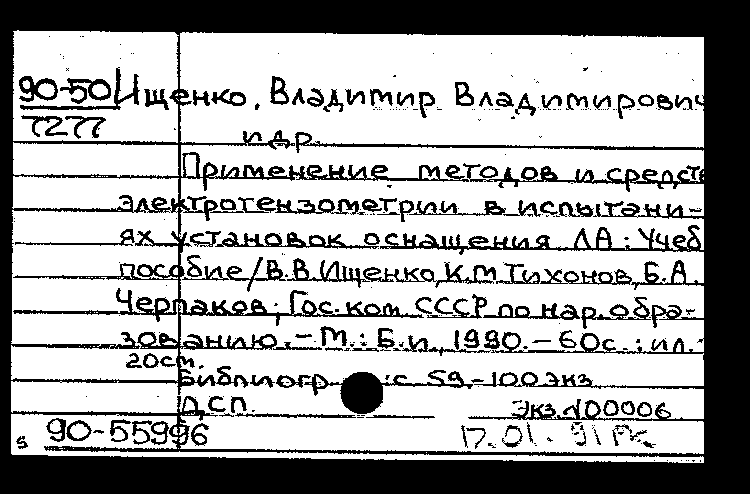 90-50 Ищенко, Владимир Владимирович
7277
и др.
Применение методов и средств
электротензометрии в испытани-
ях установок оснащения ЛА : Учеб
пособие / В.В.Ищенко, К.М.Тихонов, Б.А.
Черпаков; Гос. ком. СССР по нар. обра-
зованию. - М. : Б.и., 1990. - 60с. : ил. -
20см.
Библиогр : с. 59. - 100 экз
ДСП. Экз. N00006
s 90-55996 17.01.91